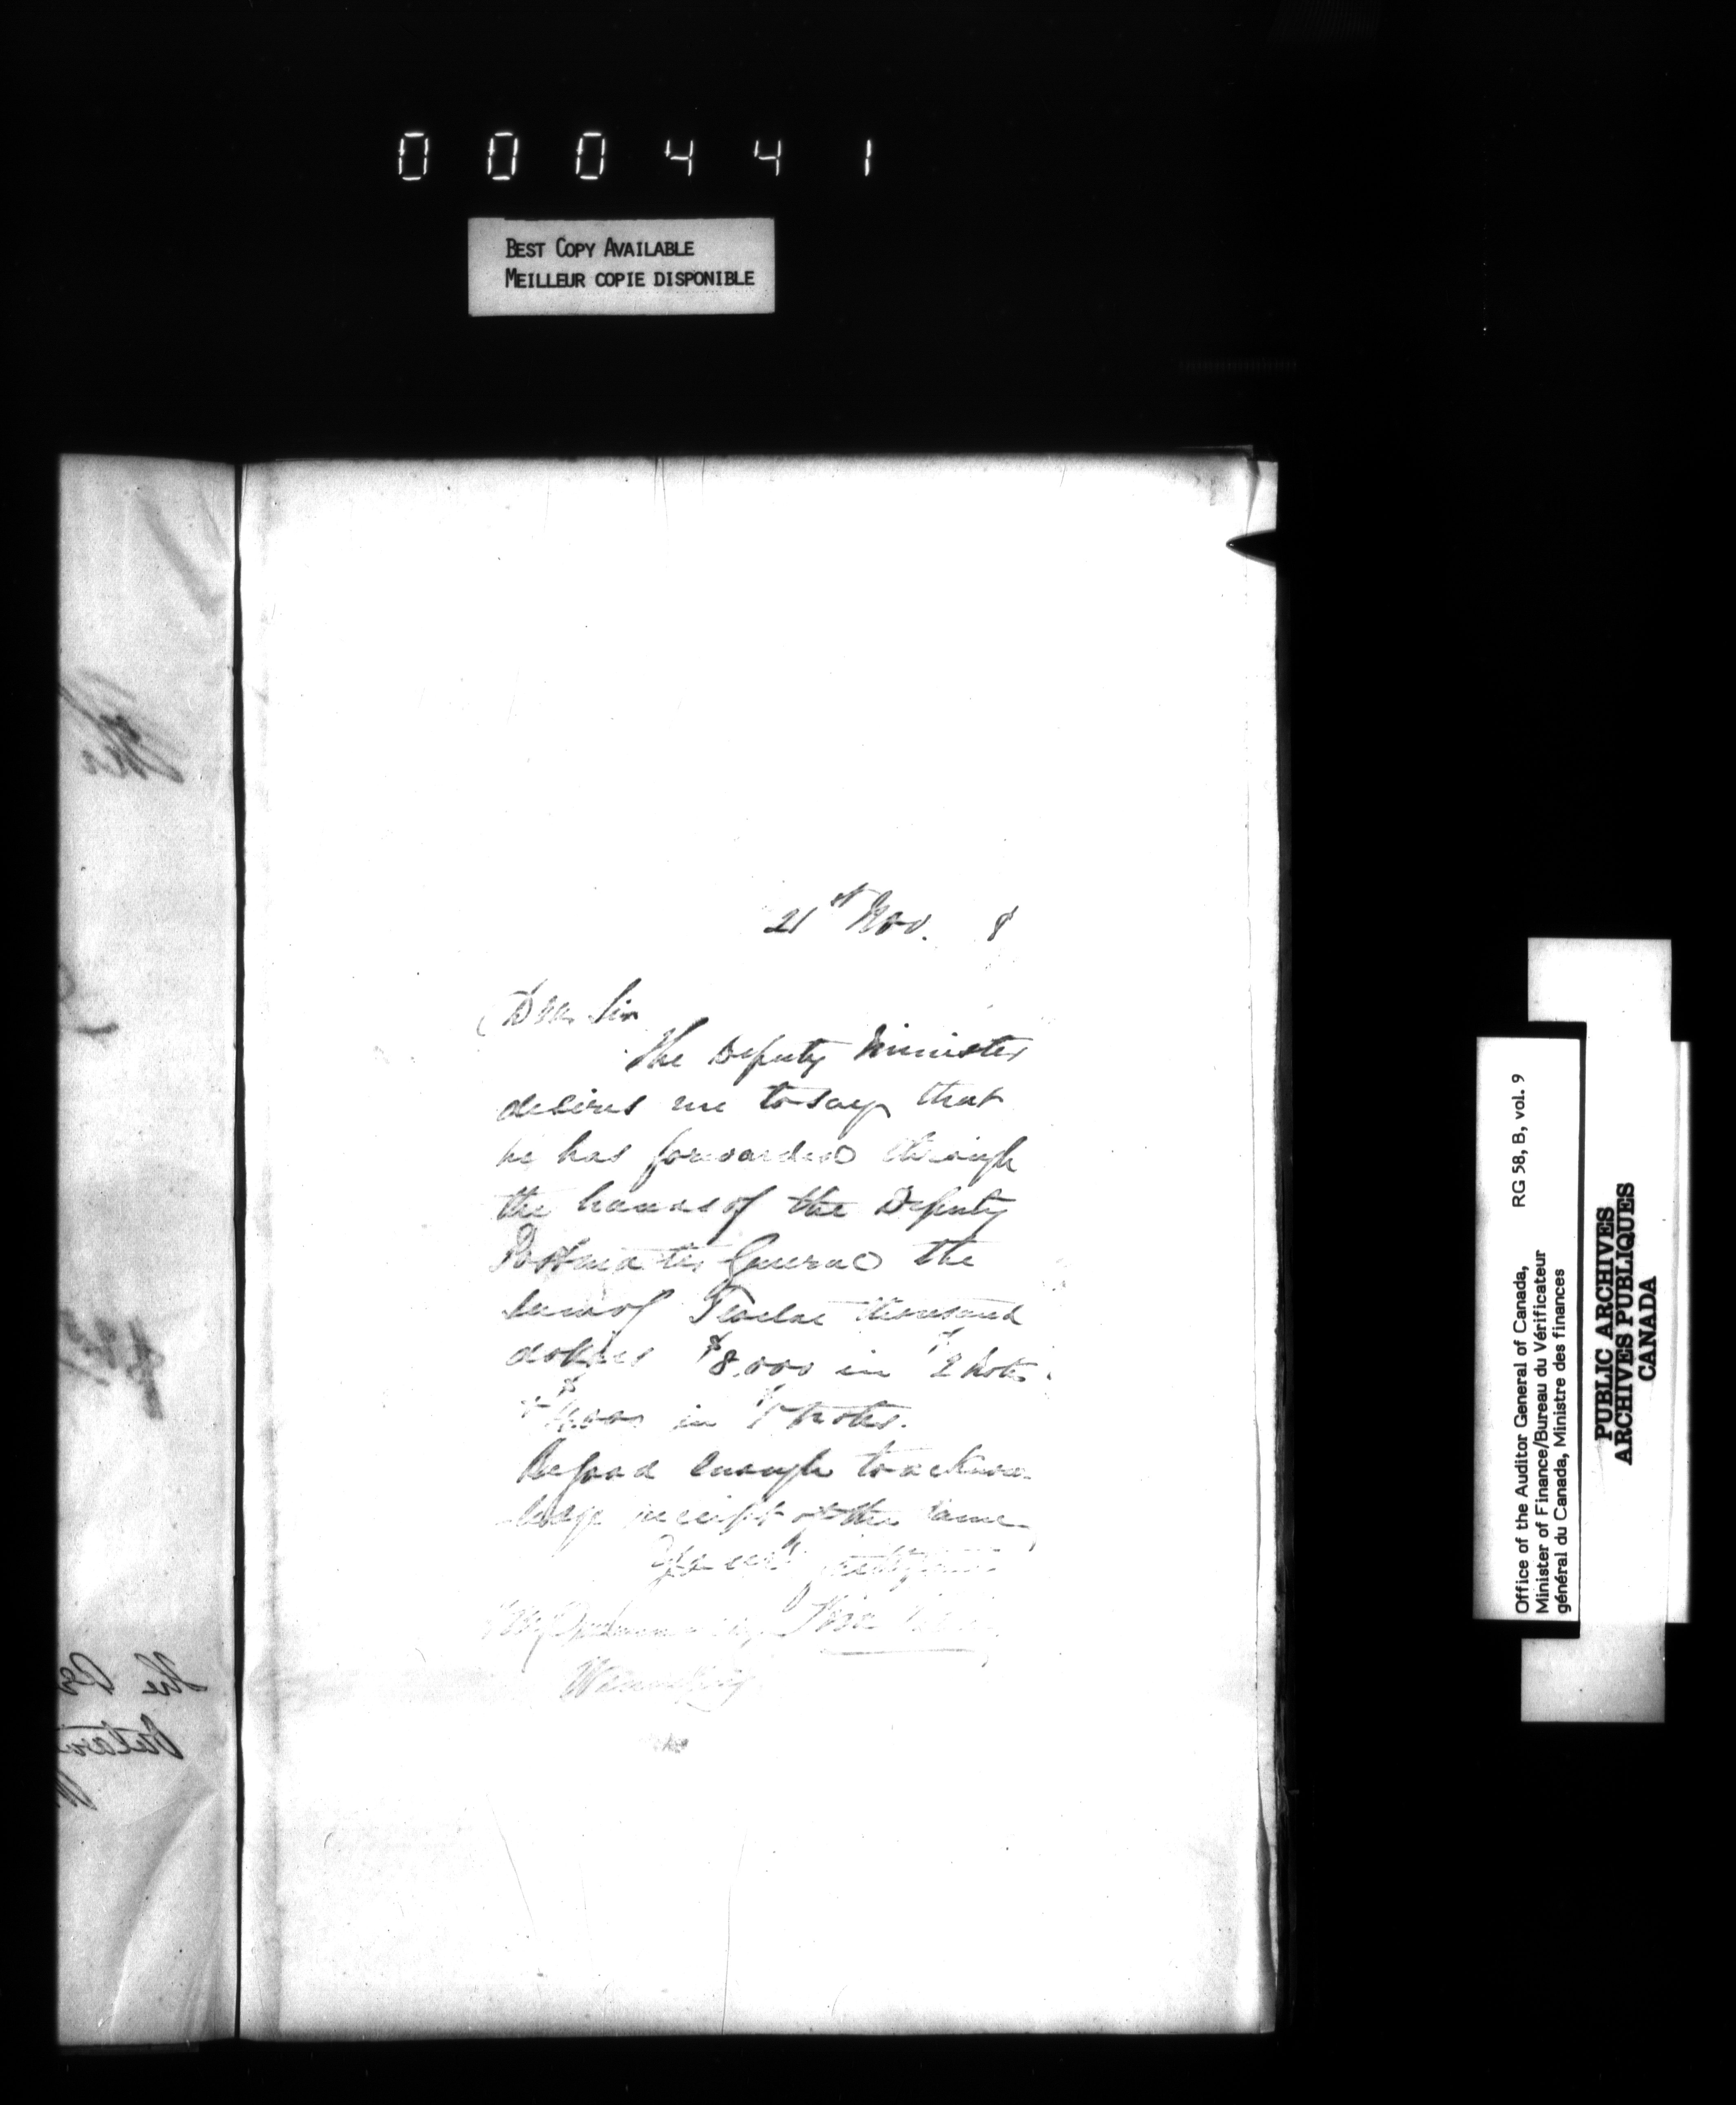 000441
BEST COPY AVAILABLE
MEILLEUR COPIE DISPONIBLE
21st Nov. 8
Dear Sir
The Deputy Minister
desires me to say that
he has forwarded through
the hands of the Deputy
Postmaster General the
sum of Twelve thousand
dollars $8.000 in $2 notes
+ $4.000 in $1 notes.
Be good enough to acknow-
ledge receipt of the same
Winnipeg
Office of the Auditor General of Canada, RG 58, B, vol. 9
Minister of Finance/Bureau du Vérificateur
général du Canada, Ministre des finances
PUBLIC ARCHIVES
ARCHIVES PUBLIQUES
CANADA